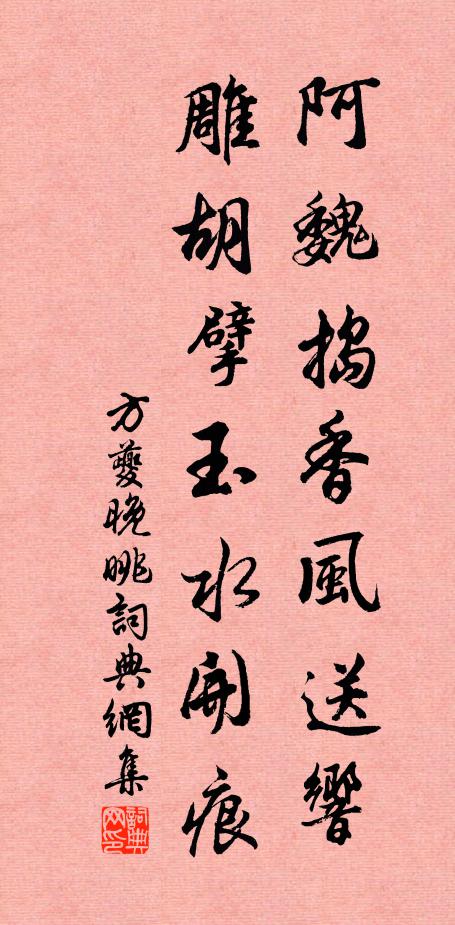 阿魏搗香風送響
雕胡擘玉水開痕
方夔晚眺詞典網集
詞典网印